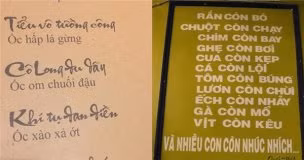 Tiểu vô tướng công
Ốc hấp lá gừng
Cô Long du đây
Ốc om chuối đậu
Khí tụ đan điền
Ốc xào xả ớt
RẮN CÒN BÒ
CHUỘT CÒN CHẠY
CHIM CÒN BAY
GHẸ CÒN BƠI
CUA CÒN KẸP
CÁ CÒN LỘI
TÔM CÒN BÚNG
LƯƠN CHÚI
ẾCH CÒN NHẢY
GÀ CÒN MỔ
VỊT CÒN KÊU
VÀ NHIỀU CON CÒN NHÚC NHÍCH...